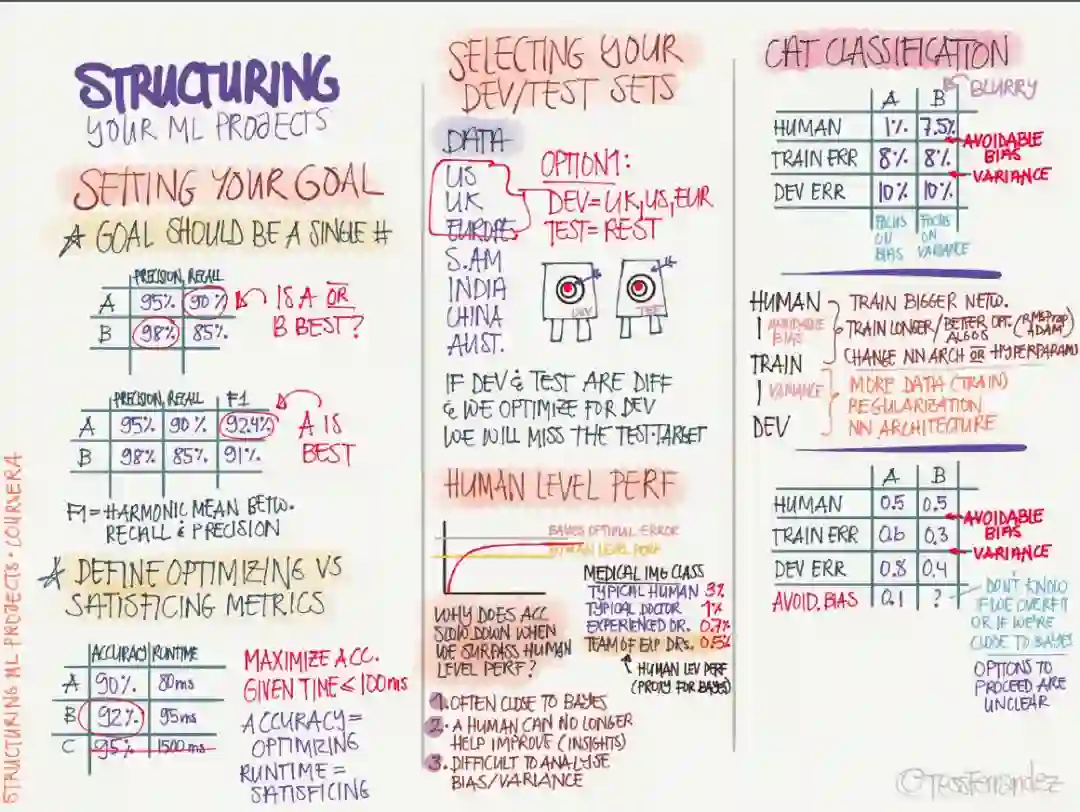 STRUCTURING
YOUR ML PROJECTS
SETTING YOUR GOAL
GOAL SHOULD BE A SINGLE #
PRECISION, RECALL
A 95% 90%
B 98% 85%
IS A OR
B BEST?
PRECISION, RECALL F1
A 95% 90% 92.4%
B 98% 85% 91%
A IS
BEST
F1 = HARMONIC MEAN BETW.
RECALL & PRECISION
DEFINE OPTIMIZING VS
SATISFICING METRICS
ACCURACY RUNTIME
A 90% 80ms
B 92% 95ms
C 95% 1500ms
MAXIMIZE ACC.
GIVEN TIME < 100ms
ACCURACY =
OPTIMIZING
RUNTIME =
SATISFICING
STRUCTURING ML PROJECTS · COURSERA
SELECTING YOUR
DEV/TEST SETS
DATA
US
UK
EUROPE
S.AM
INDIA
CHINA
AUST.
OPTION1:
DEV = UK, US, EUR
TEST = REST
DEV
IF DEV & TEST ARE DIFF
& WE OPTIMIZE FOR DEV
WE WILL MISS THE TEST-TARGET
HUMAN LEVEL PERF
BAYES OPTIMAL ERROR
HUMAN LEVEL PERF
MEDICAL IMG CLASS
TYPICAL HUMAN 3%
TYPICAL DOCTOR 1%
EXPERIENCED DR. 0.7%
TEAM OF EXP DRS. 0.5%
HUMAN LEV PERF
(PROXY FOR BAYES)
WHY DOES ACC
SLOW DOWN WHEN
WE SURPASS HUMAN
LEVEL PERF?
1. OFTEN CLOSE TO BAYES
2. A HUMAN CAN NO LONGER
HELP IMPROVE (INSIGHTS)
3. DIFFICULT TO ANALYSE
BIAS/VARIANCE
CAT CLASSIFICATION
BLURRY
A B
HUMAN 1% 7.5%
TRAIN ERR 8% 8%
DEV ERR 10% 10%
AVOIDABLE
BIAS
VARIANCE
FOCUS
ON
BIAS
FOCUS
ON
VARIANCE
HUMAN
AVOIDABLE
BIAS
TRAIN
VARIANCE
DEV
TRAIN BIGGER NETW.
TRAIN LONGER/BETTER OPT. ALGOS (RMSProp ADAM)
CHANGE NN ARCH OR HYPERPARAMS
MORE DATA (TRAIN)
REGULARIZATION
NN ARCHITECTURE
A B
HUMAN 0.5 0.5
TRAIN ERR 0.6 0.3
DEV ERR 0.8 0.4
AVOID. BIAS 0.1 ?
AVOIDABLE
BIAS
VARIANCE
DON'T KNOW
IF WE OVERFIT
OR IF WE'RE
CLOSE TO BAYES
OPTIONS TO
PROCEED ARE
UNCLEAR
©TessFerrandez